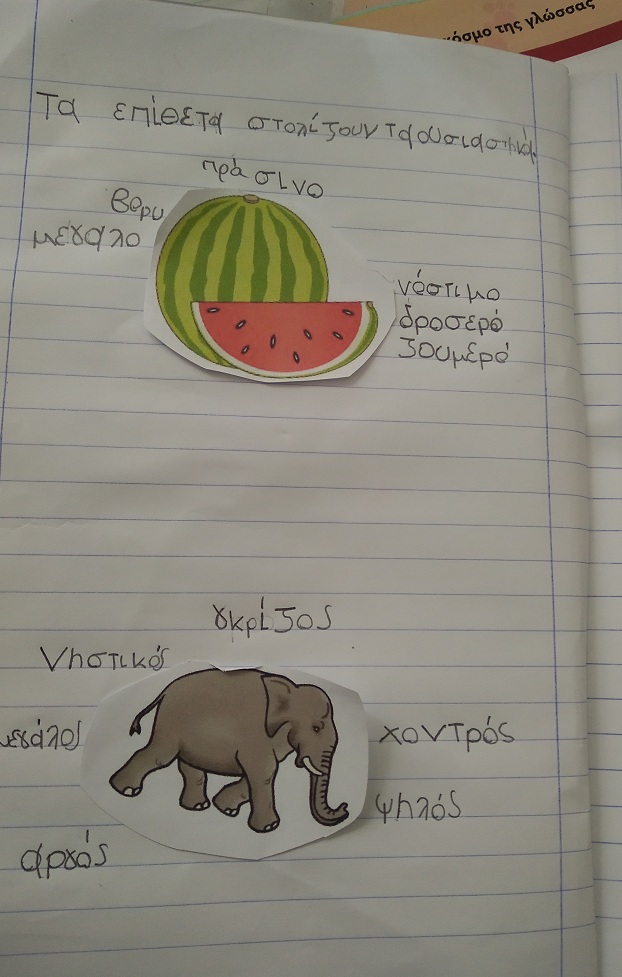 όσμο της γλώσσας
Τα επίθετα στολίζουν τα ουσιαστικά
πράσινο
βαρυ
μεγαλο
νόστιμο
δροσερό
ζουμερό
γκρίζος
νηστικός
μεγάλος
χοντρός
ψηλός
αργός